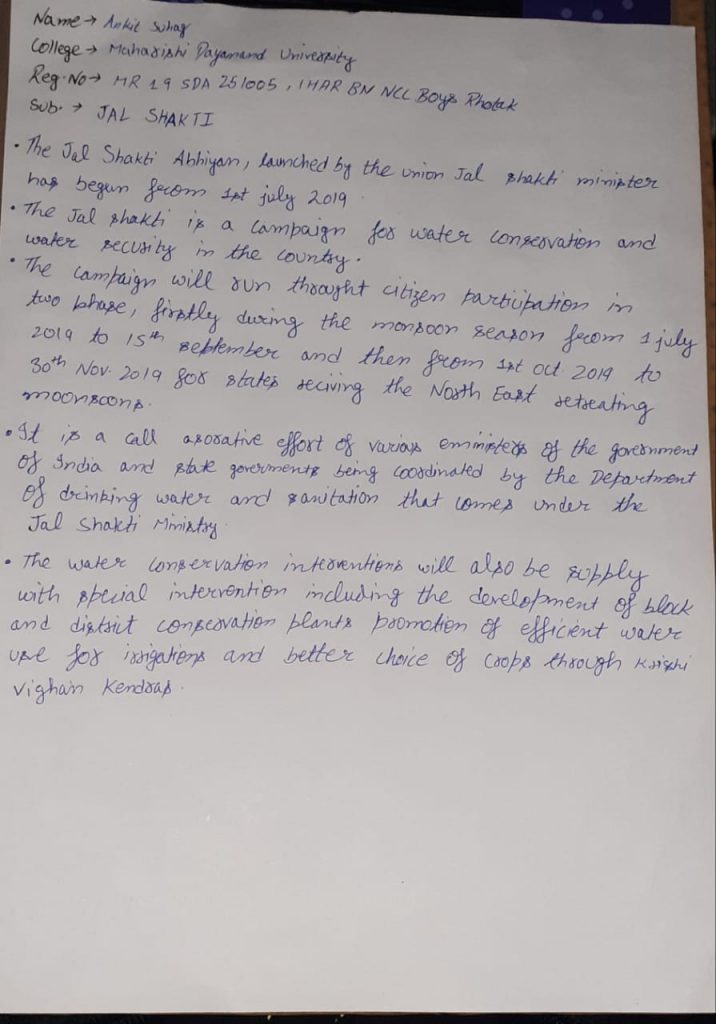 Name → Ankit Suhag
College → Maharishi Dayanand University
Reg. No → HR 19 SDA 251005, 1 HAR BN NCC Boys Rhotak
Sub. → JAL SHAKTI
• The Jal Shakti Abhiyan, launched by the union Jal shakti minister
has begun from 1st july 2019
• The Jal shakti is a campaign for water conservation and
water security in the country.
• The campaign will run throught citizen participation in
two phase, firstly during the monsoon season from 1 july
2019 to 15th september and then from 1st oct 2019 to
30th Nov. 2019 for states reciving the North East retreating
moonsoons.
• It is a call aborative effort of various eministers of the government
of India and state goverments being coordinated by the Department
of drinking water and sanitation that comes under the
Jal Shakti Ministry.
• The water conservation interventions will also be supply
with special intervention including the development of block
and district conservation plants promotion of efficient water
use for irrigations and better choice of crops through Krishi
Vighan Kendras.